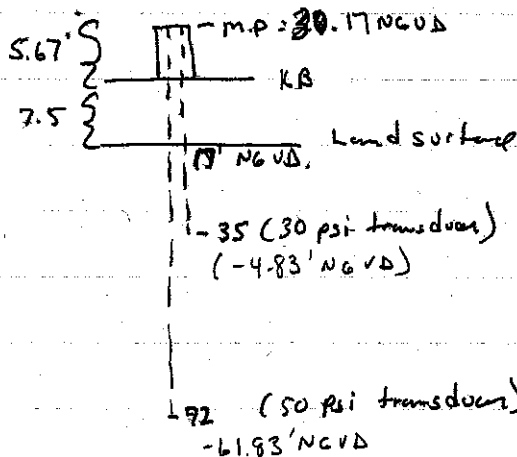 5.67'
- M.P = 30.17 NGVD
KB
7.5
Land surface
17' NGVD.
- 35 (30 psi transducer)
(-4.83' NGVD)
- 92 (50 psi transducer)
-61.83' NGVD